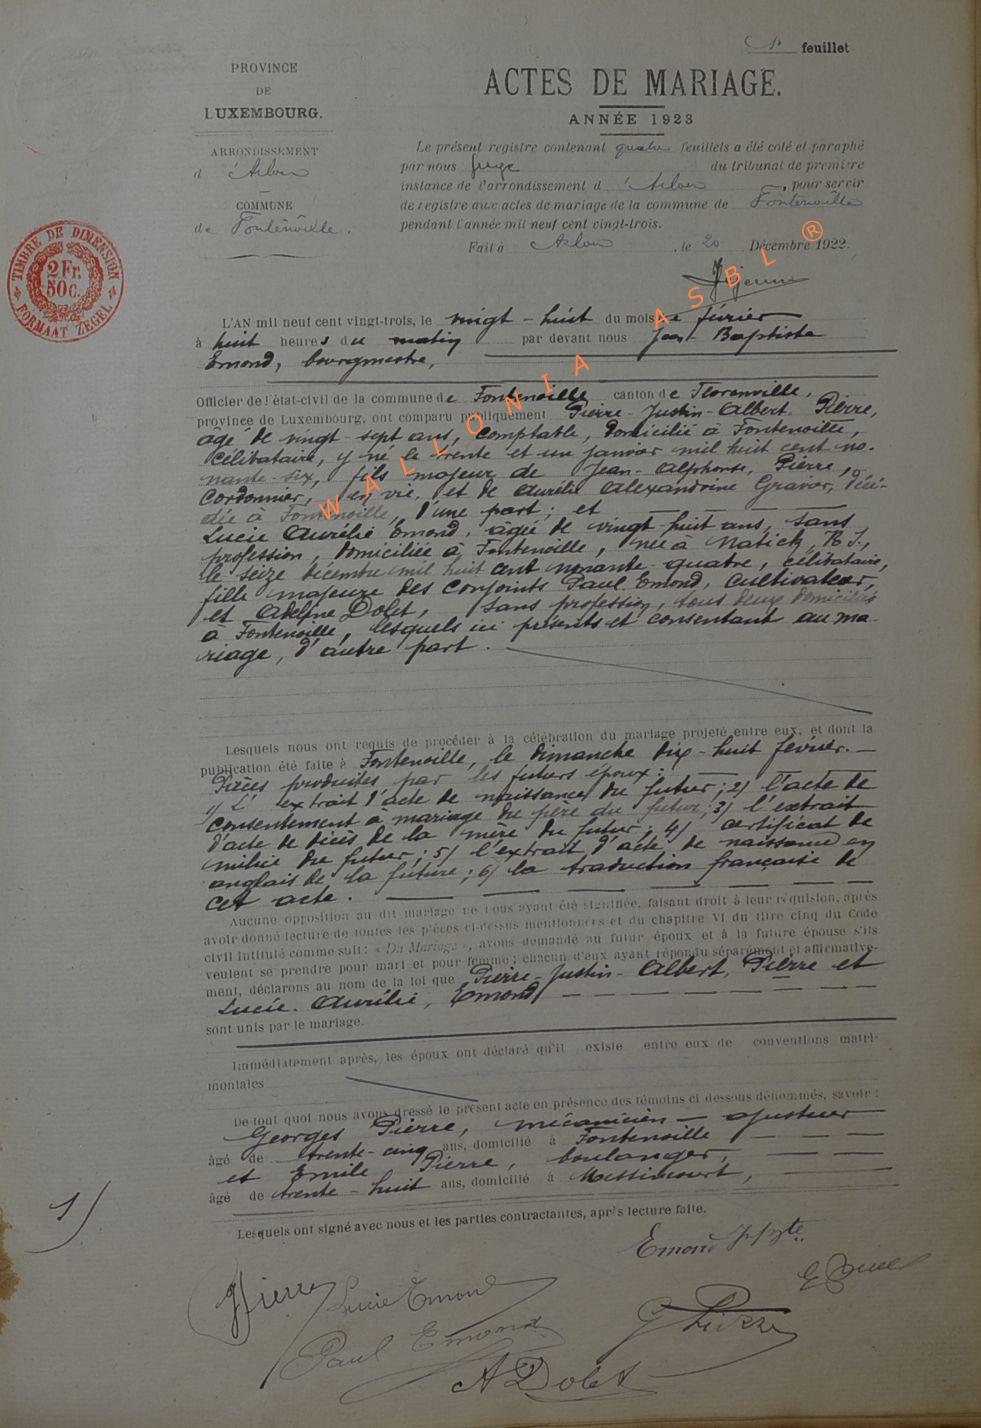 1r feuillet
PROVINCE
DE
LUXEMBOURG.
ARRONDISSEMENT
d'Arlon
COMMUNE
de Fontenoille.
TIMBRE DE DIMENSION
2 Fr.
50c.
FORMAAT ZEGEL
ACTES DE MARIAGE.
ANNÉE 1923
Le présent registre contenant quatre feuillets a été coté et paraphé
par nous Juge du tribunal de première
instance de l'arrondissement d'Arlon, pour servir
de registre aux actes de mariage de la commune de Fontenoille
pendant l'année mil neuf cent vingt-trois.
Fait à Arlon, le 20 Décembre 1922.
WALLONIA ASBL ®
L'AN mil neuf cent vingt-trois, le vingt-huit du mois de février
à huit heures du matin par devant nous Jean Baptiste
Emond, bourgmestre,
Officier de l'état-civil de la commune de Fontenoille canton de Florenville,
province de Luxembourg, ont comparu publiquement Pierre-Justin-Albert, Pierre,
âgé de vingt-sept ans, comptable, domicilié à Fontenoille,
célibataire, y né le trente et un janvier mil huit cent no-
nante-six, fils majeur de Jean-Alphonse, Pierre,
cordonnier, en vie, et de Aurélie Alexandrine Gravar, décé-
dée à Fontenoille, d'une part; et
Lucie Aurélie Emond, âgée de vingt-huit ans, sans
profession, domiciliée à Fontenoille, née à Natick,
le seize décembre mil huit cent nonante-quatre, célibataire,
fille majeure des conjoints Paul Emond, cultivateur,
et Adeline Dolet, sans profession, tous deux domiciliés
à Fontenoille, lesquels ici présents et consentant au ma-
riage, d'autre part.
Lesquels nous ont requis de procéder à la célébration du mariage projeté entre eux, et dont la
publication été faite à Fontenoille, le dimanche dix-huit février.
Pièces produites par les futurs époux:
1) L'extrait d'acte de naissance du futur; 2) l'acte de
consentement à mariage du père du futur; 3) l'extrait
d'acte de décès de la mère du futur; 4) certificat de
milice du futur; 5) l'extrait d'acte de naissance en
anglais de la future; 6) la traduction française de
cet acte.
Aucune opposition au dit mariage ne nous ayant été signifiée, faisant droit à leur réquision, après
avoir donné lecture de toutes les pièces ci-dessus mentionnées et du chapitre VI du titre cinq du Code
civil intitulé comme suit: « Du Mariage », avons demandé au futur époux et à la future épouse s'ils
veulent se prendre pour mari et pour femme; chacun d'eux ayant répondu séparément et affirmative-
ment, déclarons au nom de la loi que Pierre-Justin-Albert, Pierre et
Lucie-Aurélie, Emond
sont unis par le mariage.
Immédiatement après, les époux ont déclaré qu'il existe entre eux de conventions matri-
moniales
De tout quoi nous avons dressé le présent acte en présence des témoins ci dessous dénommés, savoir:
Georges Pierre, mécanicien-ajusteur
âgé de trente-cinq ans, domicilié à Fontenoille
et Emile Pierre, boulanger,
âgé de trente-huit ans, domicilié à Messincourt,
Lesquels ont signé avec nous et les parties contractantes, après lecture faite.
1)
Emond J. Bte.
JPierre
Lucie Emond
Paul Emond
G Pierre
A Dolet